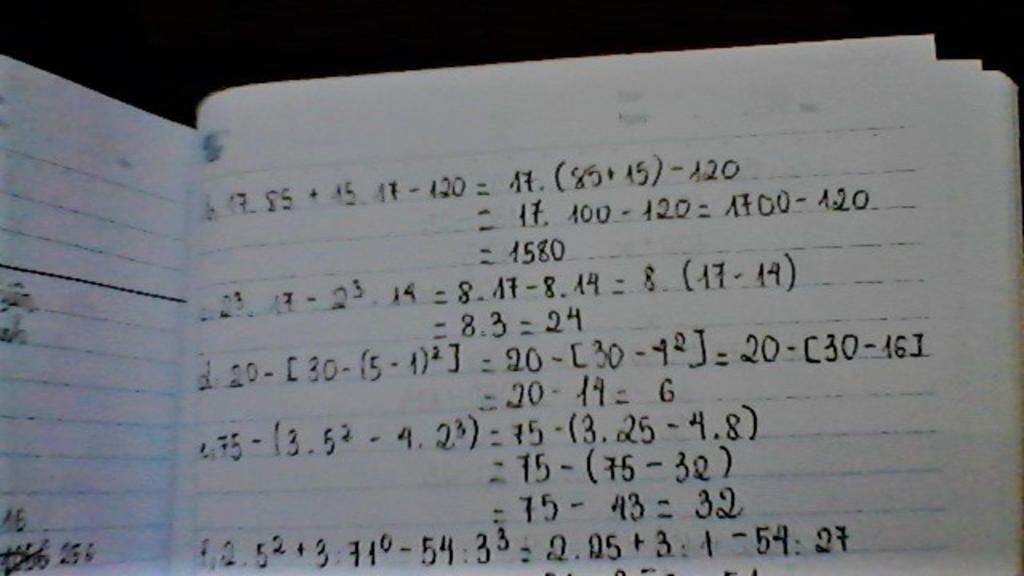 b. 17. 85 + 15. 17 - 120 = 17. (85 + 15) - 120
= 17. 100 - 120 = 1700 - 120
= 1580
2³. 17 - 2³. 14 = 8. 17 - 8. 14 = 8. (17 - 14)
= 8. 3 = 24
d. 20 - [30 - (5 - 1)²] = 20 - [30 - 4²] = 20 - [30 - 16]
= 20 - 14 = 6
75 - (3. 5² - 4. 2³) = 75 - (3. 25 - 4. 8)
= 75 - (75 - 32)
= 75 - 43 = 32
16
256
f, 2. 5² + 3: 71⁰ - 54: 3³ = 2. 25 + 3: 1 - 54: 27